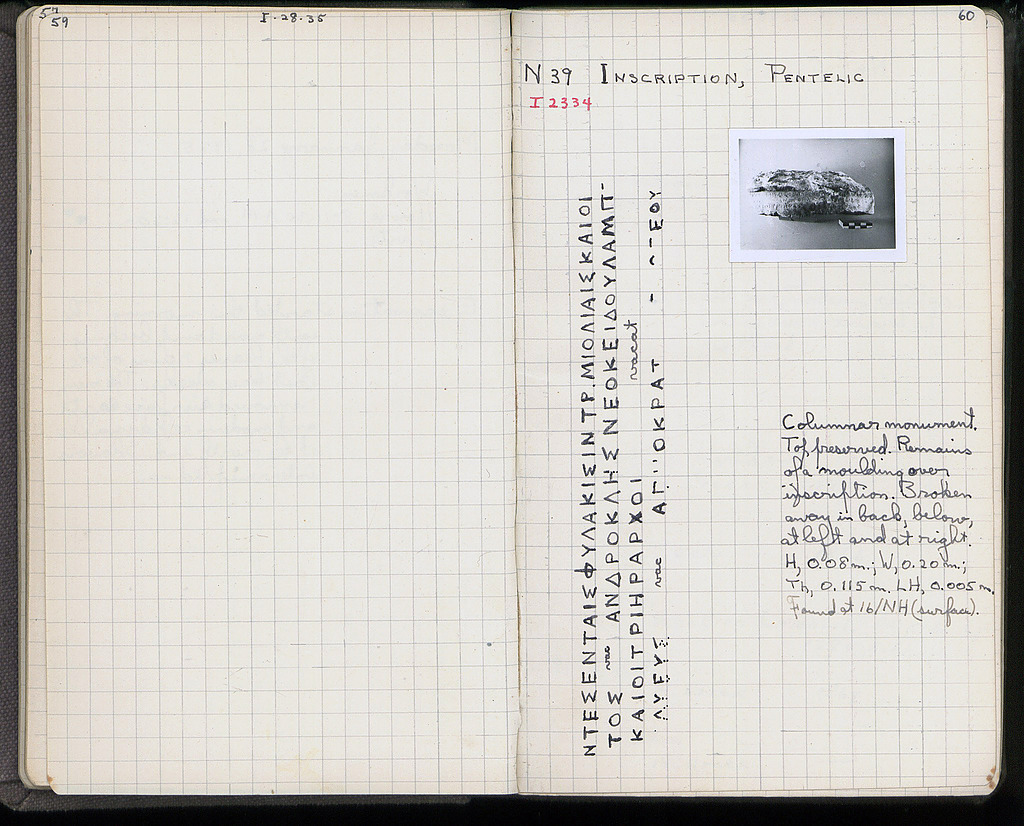 57
59
I-28-35
60
N 39 INSCRIPTION, PENTELIC
I 2334
ΝΤΕΣΕΝΤΑΙΣΦΥΛΑΚΙΣΙΝΤΡ.ΜΙΟΛΙΑΙΣΚΑΙΟΙ
ΤΟΣ vac ΑΝΔΡΟΚΛΗΣΝΕΟΚΕΙΔΟΥΛΑΜΠ-
ΚΑΙΟΙΤΡΙΗΡΑΡΧΟΙ vacat
vac ΟΚΡΑΤ - ΕΟΥ
Columnar monument.
Top preserved. Remains
of a moulding over
inscription. Broken
away in back, below,
at left and at right.
H, 0.08m.; W, 0.20m.;
Th, 0.115m. LH, 0.005m.
Found at 16/NH (surface).